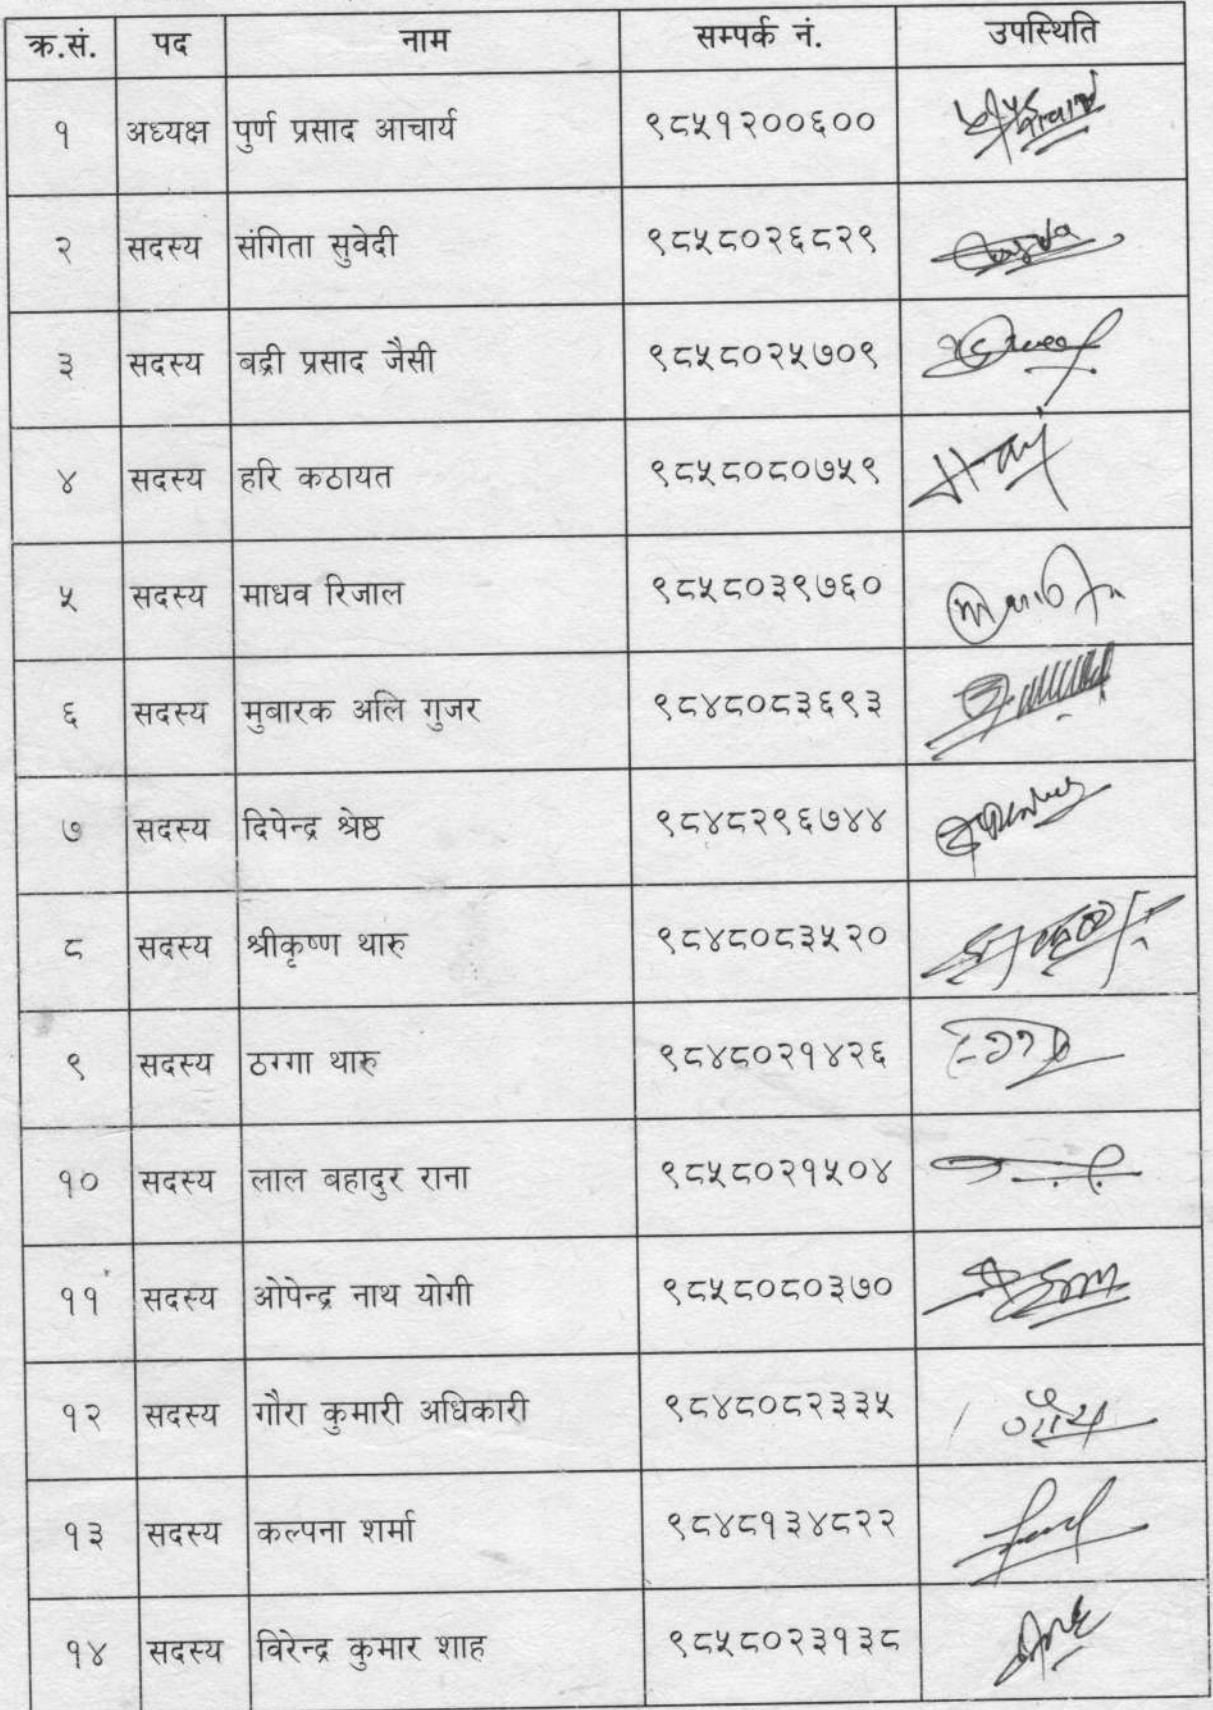 क्र.सं. पद नाम सम्पर्क नं. उपस्थिति
१ अध्यक्ष पुर्ण प्रसाद आचार्य ९८५१२००६००
२ सदस्य संगिता सुवेदी ९८५८०२६८२९
३ सदस्य बद्री प्रसाद जैसी ९८५८०२५७०९
४ सदस्य हरि कठायत ९८५८०८०७५९
५ सदस्य माधव रिजाल ९८५८०३९७६०
६ सदस्य मुबारक अलि गुजर ९८४८०८३६९३
७ सदस्य दिपेन्द्र श्रेष्ठ ९८४८२९६७४४
८ सदस्य श्रीकृष्ण थारु ९८४८०८३५२०
९ सदस्य ठग्गा थारु ९८४८०२१४२६
१० सदस्य लाल बहादुर राना ९८५८०२१५०४
११ सदस्य ओपेन्द्र नाथ योगी ९८५८०८०३७०
१२ सदस्य गौरा कुमारी अधिकारी ९८४८०८२३३५
१३ सदस्य कल्पना शर्मा ९८४८१३४८२२
१४ सदस्य विरेन्द्र कुमार शाह ९८५८०२३१३८